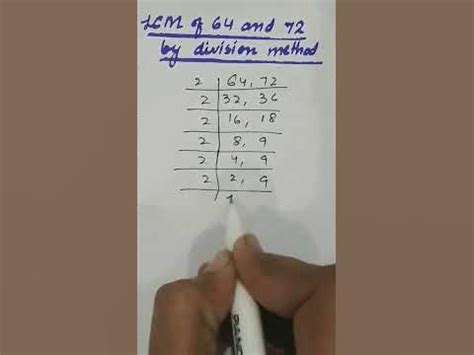 LCM of 64 and 72
by division method
2 | 64, 72
2 | 32, 36
2 | 16, 18
2 | 8, 9
2 | 4, 9
2 | 2, 9
1